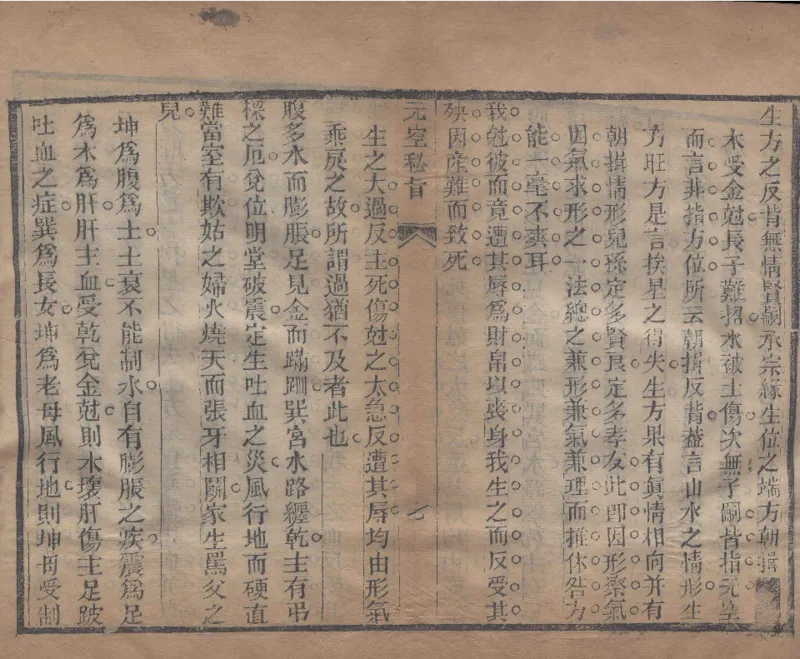 生方之反背無情賢嗣承宗緣生位之端方朝揖
木受金尅長子難招水被土傷次無子嗣皆指元空
而言非指方位所云朝揖反背蓋言山水之情形生
方旺方是言挨星之得失生方果有眞情相向并有
朝揖情形兒孫定多賢良定多孝友此即因形察氣
因氣求形之一法總之兼形兼氣兼理而推休咎方
能一毫不爽耳
我尅彼而竟遭其辱爲財帛以喪身我生之而反受其
殃因產難而致死
元空秘旨
生之大過反主死傷尅之太急反遭其辱均由形氣
乖戾之故所謂過猶不及者此也
腹多水而膨脹足見金而蹣跚巽宮水路纒乾主有弔
樑之厄兌位明堂破震定生吐血之災風行地而硬直
難當室有欺姑之婦火燒天而張牙相鬬家生罵父之
兒
坤爲腹爲土土衰不能制水自有膨脹之疾震爲足
爲木爲肝肝主血受乾兌金尅則木壞肝傷主足跛
吐血之症巽爲長女坤爲老母風行地則坤母受制